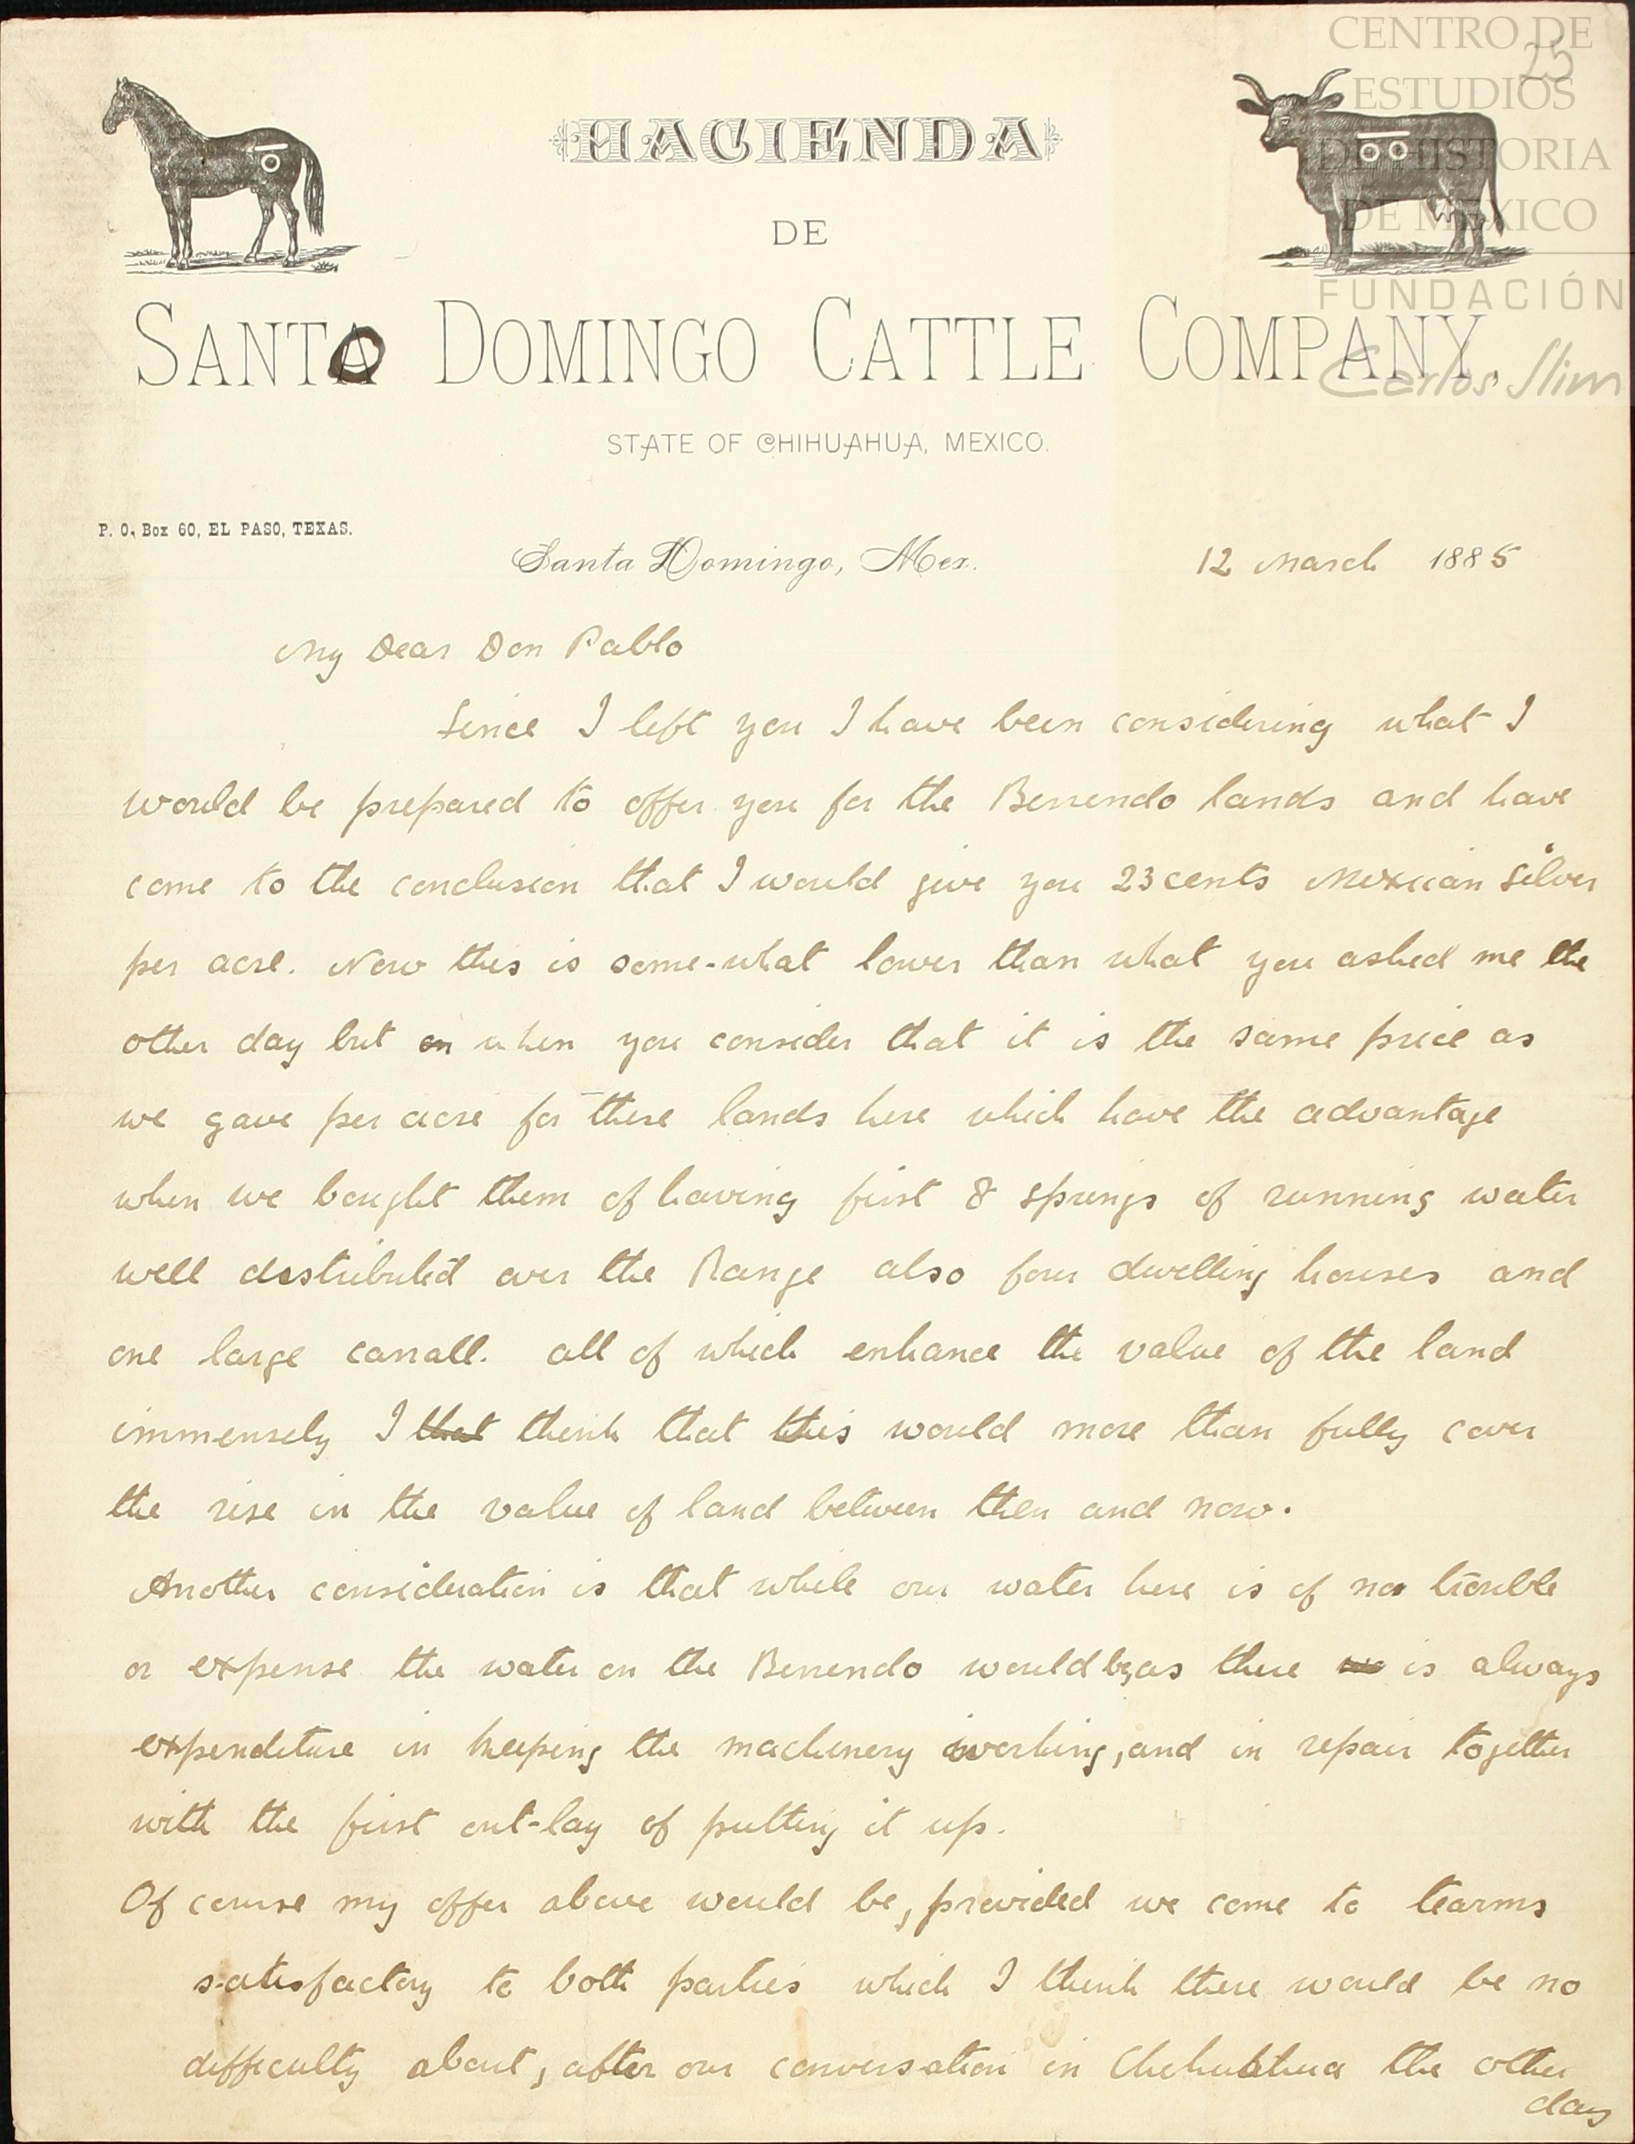 25
CENTRO DE
ESTUDIOS
DE HISTORIA
DE MÉXICO
FUNDACIÓN
Carlos Slim
HACIENDA
DE
SANTO DOMINGO CATTLE COMPANY,
STATE OF CHIHUAHUA, MEXICO.
P. O. Box 60, EL PASO, TEXAS.
Santa Domingo, Mex. 12 March 1885
My Dear Don Pablo
Since I left you I have been considering what I
would be prepared to offer you for the Berrendo lands and have
come to the conclusion that I would give you 23 cents Mexican Silver
per acre. Now this is some-what lower than what you asked me the
other day but on when you consider that it is the same price as
we gave per acre for these lands here which have the advantage
when we bought them of having first 8 springs of running water
well distributed over the Range also four dwelling houses and
one large corrall. all of which enhance the value of the land
immensely I that think that this would more than fully cover
the rise in the value of land between then and now.
Another consideration is that while our water here is of no trouble
or expense the water on the Berrendo would be, as there is always
expenditure in keeping the machinery working, and in repair together
with the first out-lay of putting it up.
Of course my offer above would be, provided we come to tearms
satisfactory to both parties which I think there would be no
difficulty about, after our conversation in Chihuahua the other
day